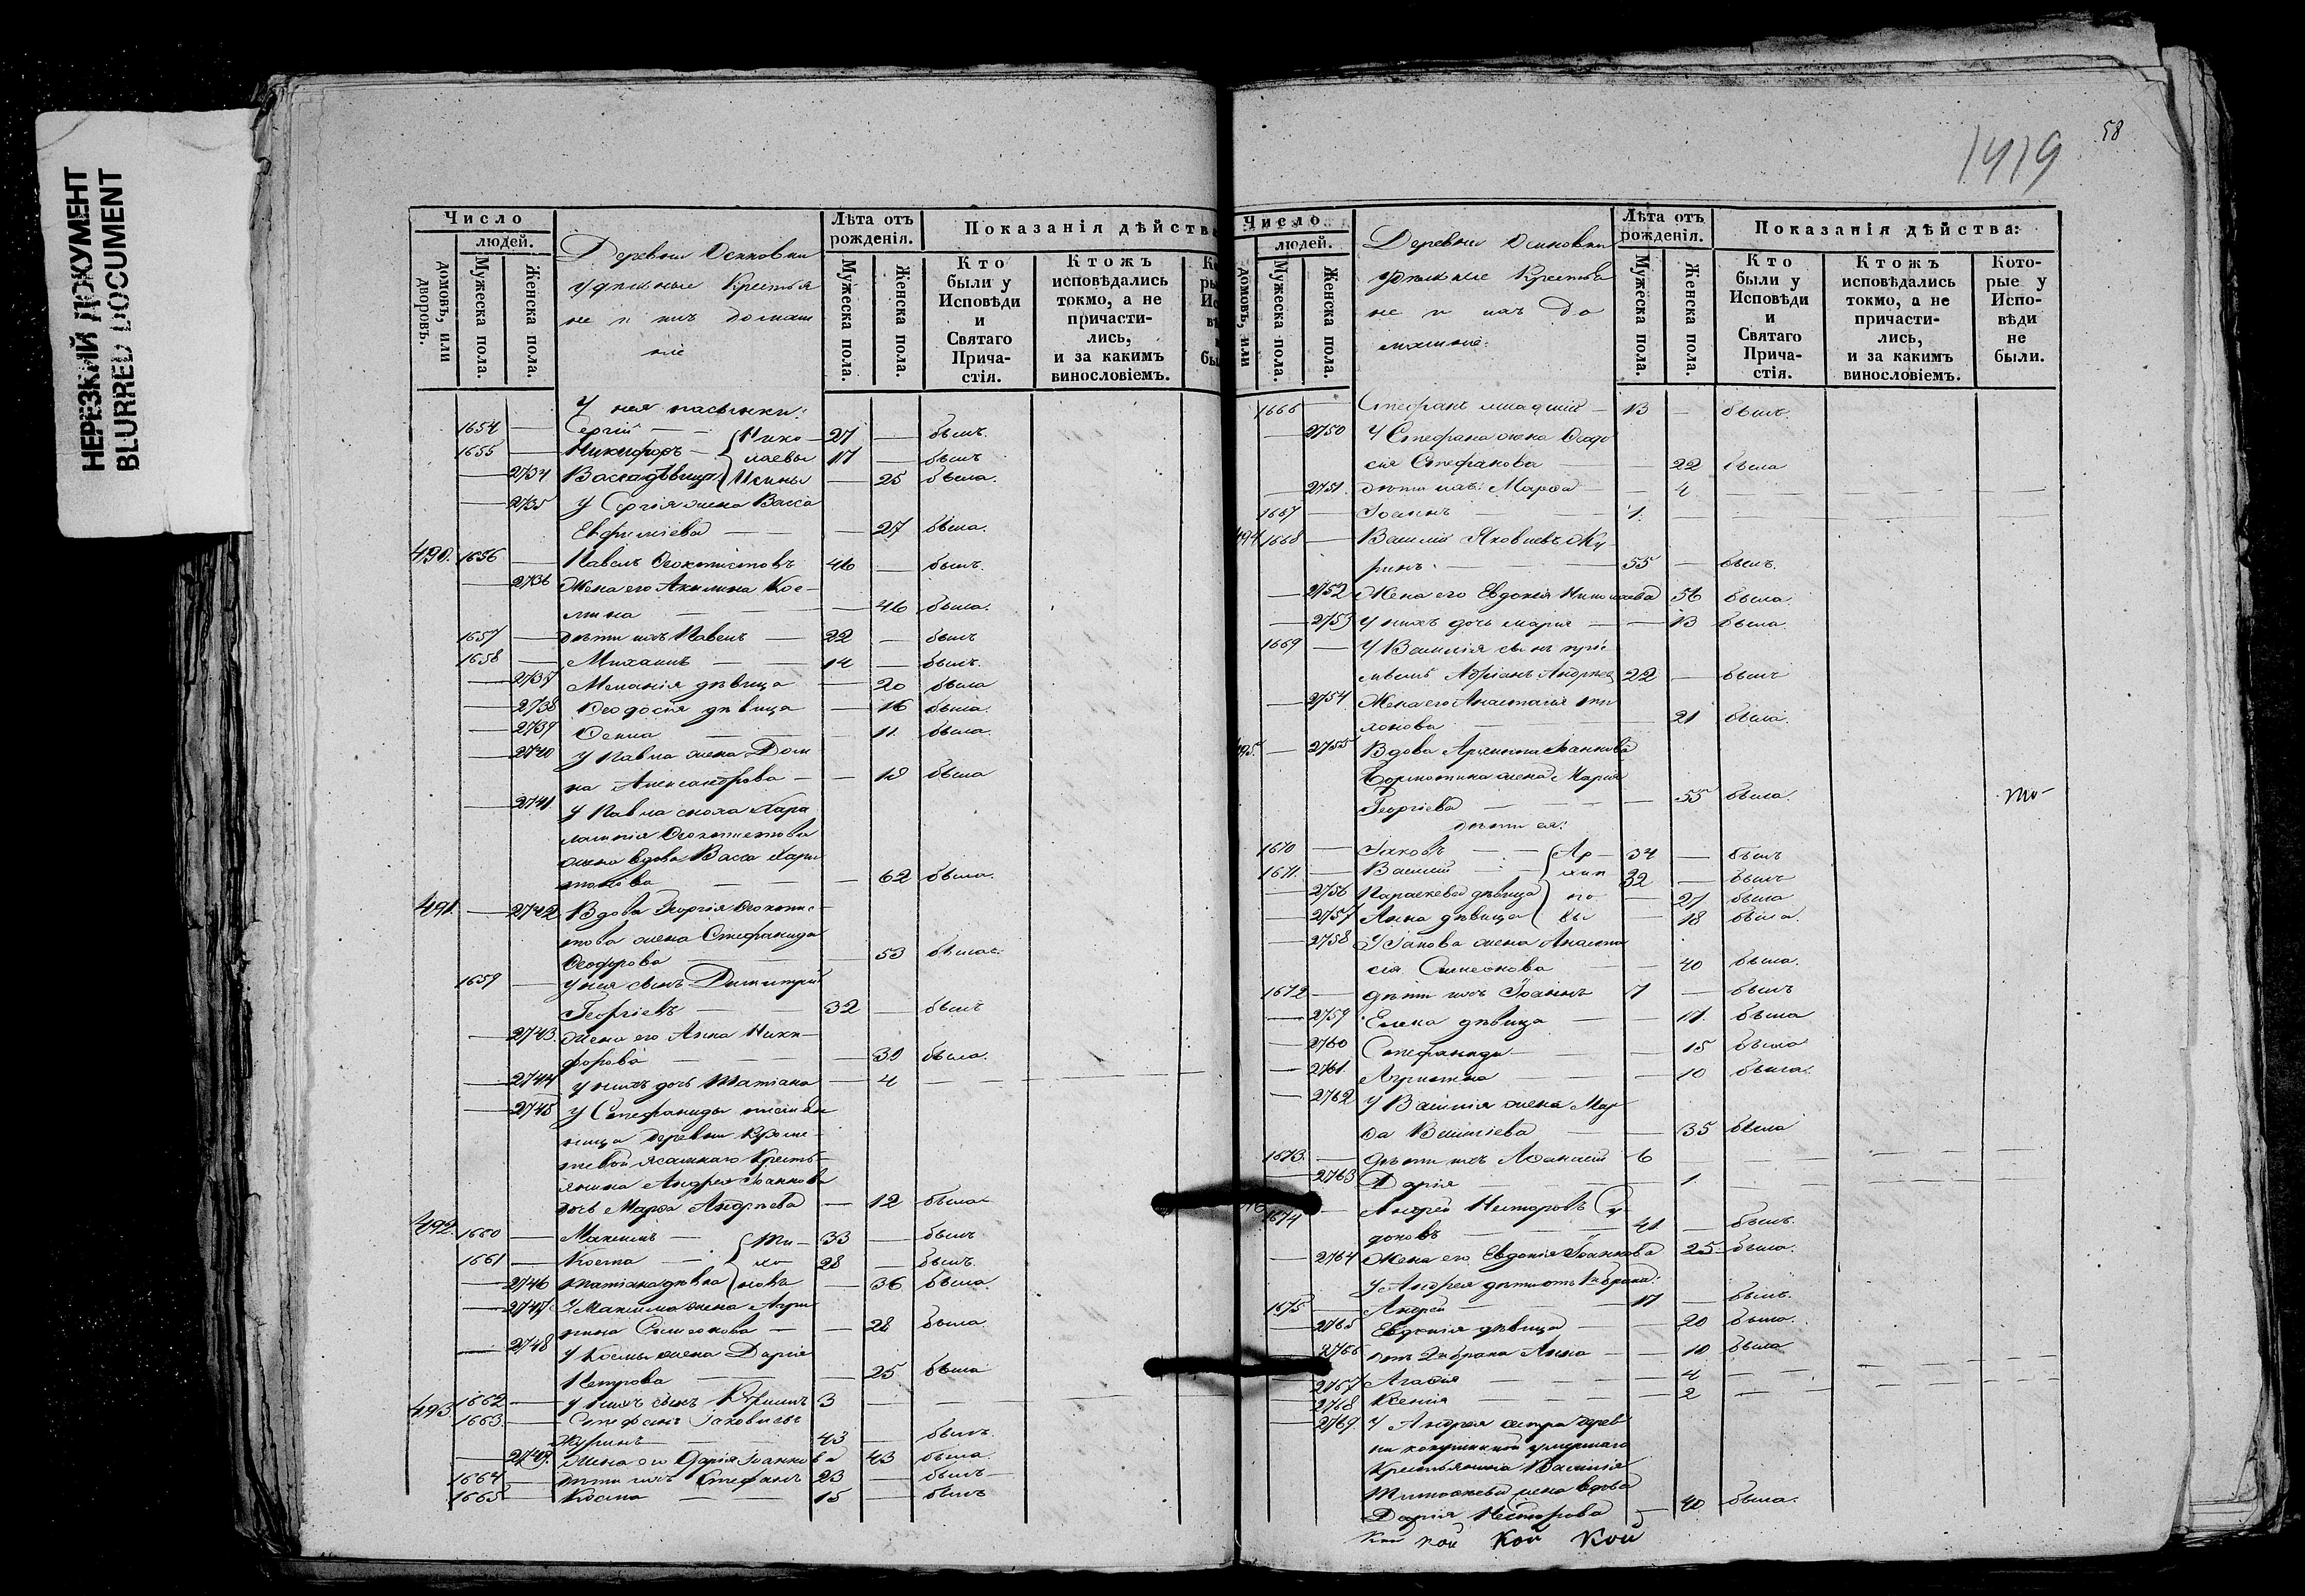 НЕРЕЗКИЙ ДОКУМЕНТ
BLURRED DOCUMENT
Число
людей.
домовъ, или дворовъ.
Мужеска пола.
Женска пола.
Деревни Осиновки
удѣльные Крестья
не и ихъ домаш
ніе
Лѣта отъ рожденія.
Мужеска пола.
Женска пола.
Показанія дѣйства
Кто были у Исповѣди и Святаго Прича-стія.
Ктожъ исповѣдались токмо, а не причасти-лись, и за какимъ винословіемъ.
У нея пасынки:
1654 — Сергій — — 27 — былъ.
1655 — Никифоръ — Нико 17 — былъ
лаевы
— 2734 Васса дѣвица — 25 была.
— 2735 У Сергія жена Васса
Евфиміева — — — 27 была.
490. 1656 — Павелъ Ѳеоктистовъ 46 — былъ.
— 2736 Жена его Акилина Кос-
мина — — — 46 была.
1657 — дѣти ихъ Павелъ — 22 — былъ
1658 — Михаилъ — — 14 — былъ.
— 2737 Меланія дѣвица — 20 была
— 2738 Ѳеодосія дѣвица — 16 была.
— 2739 Ѳекла — — 11. была.
— 2740 У Павла жена Дом
на Александрова — — 19 была
— 2741. У Павла сноха Хара
лампія Ѳеоктистова
жена вдова Васса Хари
тонова — — — 62 была.
491. — 2742 Вдова Георгія Ѳеоктис-
това жена Стефанида
Ѳеодорова — — 53 была.
1659 — У нея сынъ Димитрій
Георгіевъ — — 32 — былъ
— 2743. Жена его Анна Ники-
форова — — — 31 была.
— 2744 у нихъ дочь Татіана — 4 — —
— 2745 У Стефаниды племян
ница деревни
ясашнаго Кресть-
янина Андрея Іоаннова
дочь Марѳа Андреева — 12 была
492. 1660 — Максимъ — Ти 33 — былъ
1661 — Косма — хо 28 — былъ.
— 2746 Татіана дѣвка новы — 36 была
— 2747 У Максима жена Агри
пина Симеонова — — 28 была.
— 2748 У Космы жена Дарія
Петрова — — 25 была
1662 — у нихъ сынъ Кириллъ 3 — —
493. 1663. — Стефанъ Іаковлевъ
Журинъ — — 43 — былъ
— 2749. Жена его Дарія Іоаннова 43 была.
1664 — дѣти ихъ Стефанъ 23 — былъ
1665 — Косма — — 15 — былъ
1419
58
Число
людей.
домовъ, или
Мужеска пола.
Женска пола.
Деревни Осиновки
удѣльные Крестья
не и ихъ до
машніе.
Лѣта отъ рожденія.
Мужеска пола.
Женска пола.
Показанія дѣйства:
Кто были у Исповѣди и Святаго Прича-стія.
Ктожъ исповѣдались токмо, а не причасти-лись, и за какимъ винословіемъ.
Кото-рые у Испо-вѣди не были.
1666 — Стефанъ младшій — 13 — былъ.
— 2750 У Стефана жена Ѳеодо
сія Стефанова — — 22 была
— 2751. дѣти ихъ: Марѳа — — 4 — —
1667 — Іоаннъ — 1. — —
494 1668 — Василій Яковлевъ Жу
ринъ. — — 55 — былъ.
— 2752 Жена его Евдокія Николаева 56 была.
— 2753 У нихъ дочь Марія — — 13 была.
1669 — У Василія сынъ прі
емышъ Адріанъ Андреев 22 — былъ
— 2754 Жена его Анастасія Ти
хонова — — 21 была.
495. — 2755 Вдова Архиппа Іоаннова
жена Марія
Георгіева — — — 55 была.
дѣти ея:
1670 — Іаковъ — — Ар 34 — былъ
1671. — Василій — хип 32 — былъ
— 2756 Параскева дѣвица по — 27 была
— 2757 Анна дѣвица вы — 18 была.
— 2758 У Іакова жена Анаста
сія Симеонова — 40 была.
1672 — дѣти ихъ Іоаннъ 7 — былъ
— 2759 Елена дѣвица — — 17. была
— 2760 Стефанида — — 15 была
— 2761. Агрипина — — 10 была.
— 2762 У Василія жена Мар
ѳа Василіева — — 35 была
1673. — дѣти ихъ Аѳанасій 6 — —
— 2763 Дарія — — 1 — —
1674 — Андрей Несторовъ Су
доковъ — — 41. — былъ.
— 2764 Жена его Евдокія Іоаннова 25. была.
У Андрея дѣти отъ 1 брака:
1675 — Андрей — — 17 — былъ.
— 2765 Евдокія дѣвица — — 20 была.
— 2766 отъ 2 брака Анна — — 10 была
— 2767 Агаѳія — — 4 — —
— 2768 Ксенія — — 2 — —
— 2769. У Андрея сестра дерев
ни умершаго
Крестьянина Василія
Тимоѳеева жена вдова
Дарія Несторова — 40 была.
Кой Кой Кой Кой